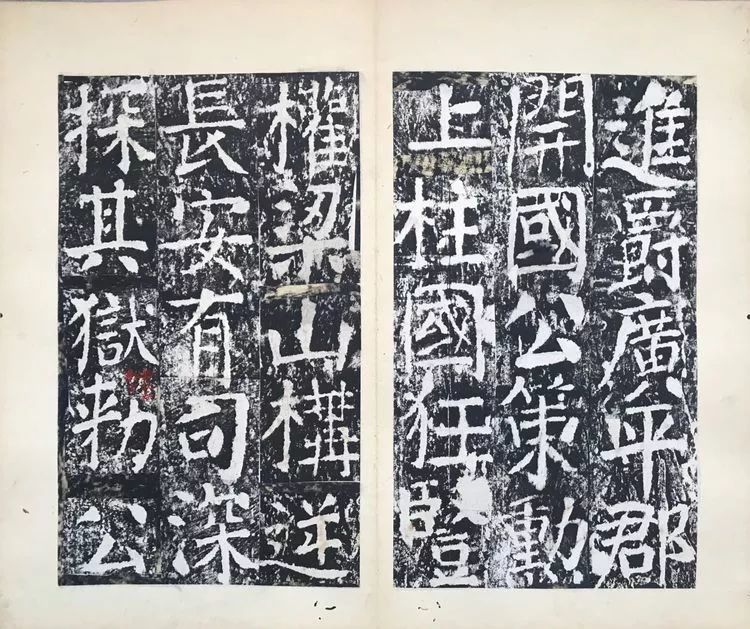 進爵廣平郡
開國公策勳
上柱國狂豎
權梁山構逆
長安有司深
探其獄勑公